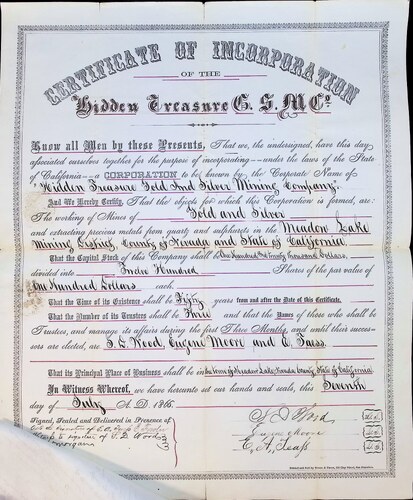 CERTIFICATE OF INCORPORATION
OF THE
Hidden Treasure G. S. M. Co.
Know all Men by these Presents, That we, the undersigned, have this day
associated ourselves together for the purpose of incorporating—under the laws of the State
of California—a CORPORATION to be known by the Corporate Name of
"Hidden Treasure Gold And Silver Mining Company".
And We Hereby Certify, That the objects for which this Corporation is formed, are:
The working of Mines of Gold and Silver
and extracting precious metals from quartz and sulphurets in the Meadow Lake
Mining District, County of Nevada and State of California.
That the Capital Stock of this Company shall be One Hundred and Twenty Thousand Dollars,
divided into Twelve Hundred Shares of the par value of
One Hundred Dollars each.
That the Time of its Existence shall be Fifty years from and after the Date of this Certificate.
That the Number of its Trustees shall be Three and the Names of those who shall be
Trustees, and manage its affairs during the first Three Months, and until their succes-
sors are elected, are Wood, Eugene Moore and E.
That its Principal Place of Business shall be in the Town of Meadow Lake, Nevada County, State of California
In Witness Whereof, we have hereunto set our hands and seals, this Seventh
day of July A. D. 1865.
Signed, Sealed and Delivered in Presence of
Wood
Eugene Moore
L.S.